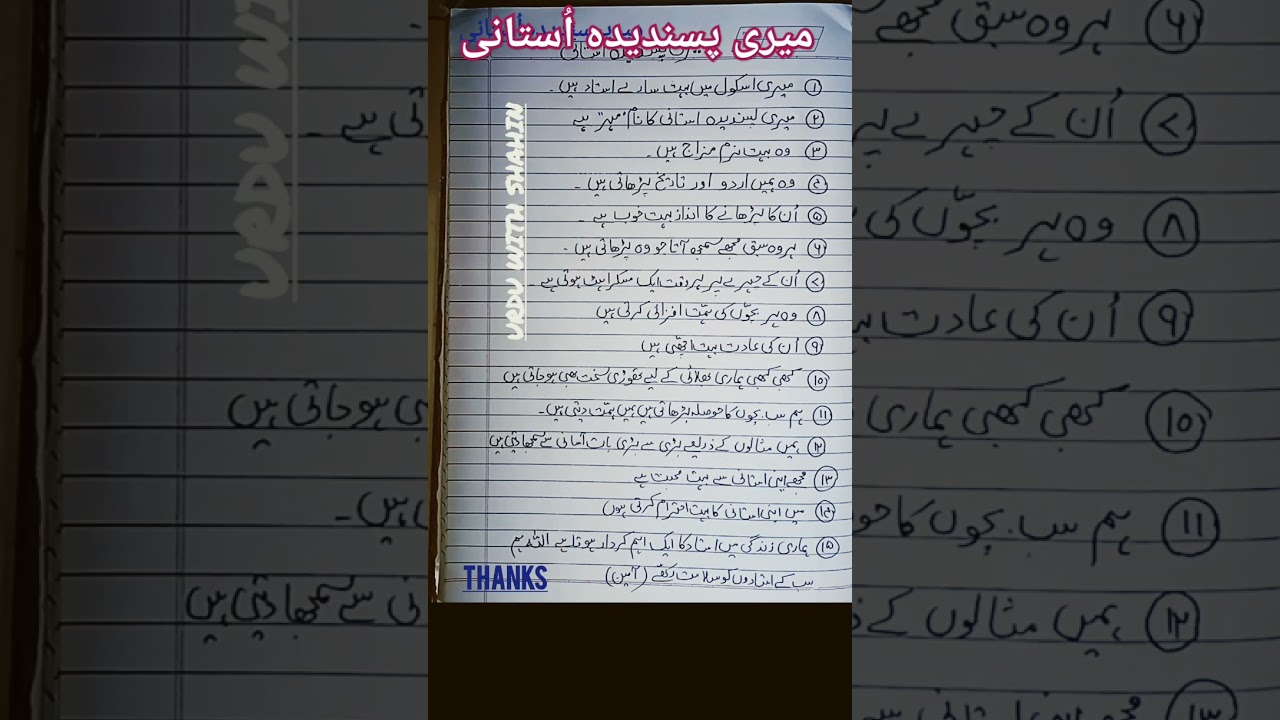 میری پسندیدہ اُستانی
میری پسندیدہ استانی
۱ میری اسکول میں بہت سارے استاد ہیں۔
۲ میری پسندیدہ استانی کا نام "مہر" ہے
۳ وہ بہت نرم مزاج ہیں۔
۴ وہ ہمیں اردو اور تاریخ پڑھاتی ہیں۔
۵ اُن کا پڑھانے کا انداز بہت خوب ہے۔
۶ ہر وہ سبق مجھے سمجھ آتا جو وہ پڑھاتی ہیں۔
۷ اُن کے چہرے پر ہر وقت ایک مسکراہٹ ہوتی ہے۔
۸ وہ ہر بچّوں کی ہمّت افزائی کرتی ہیں
۹ اُن کی عادت بہت اچھّی ہیں
۱۰ کبھی کبھی ہماری بھلائی کے لیے تھوڑی سخت بھی ہو جاتی ہیں
۱۱ ہم سب بچوں کا حوصلہ بڑھاتی ہیں ہمیں ہمّت دیتی ہیں۔
۱۲ ہمیں مثالوں کے ذریعے بڑی سے بڑی بات آسانی سے سمجھا دیتی ہیں
۱۳ مجھے اپنی استانی سے بہت محبت ہے
۱۴ میں اپنی استانی کا بہت احترام کرتی ہوں
۱۵ ہماری زندگی میں استاد کا ایک اہم کردار ہوتا ہے اللہ ہم
سب کے استادوں کو سلامت رکھے (آمین)
URDU WITH SHAHIN
THANKS